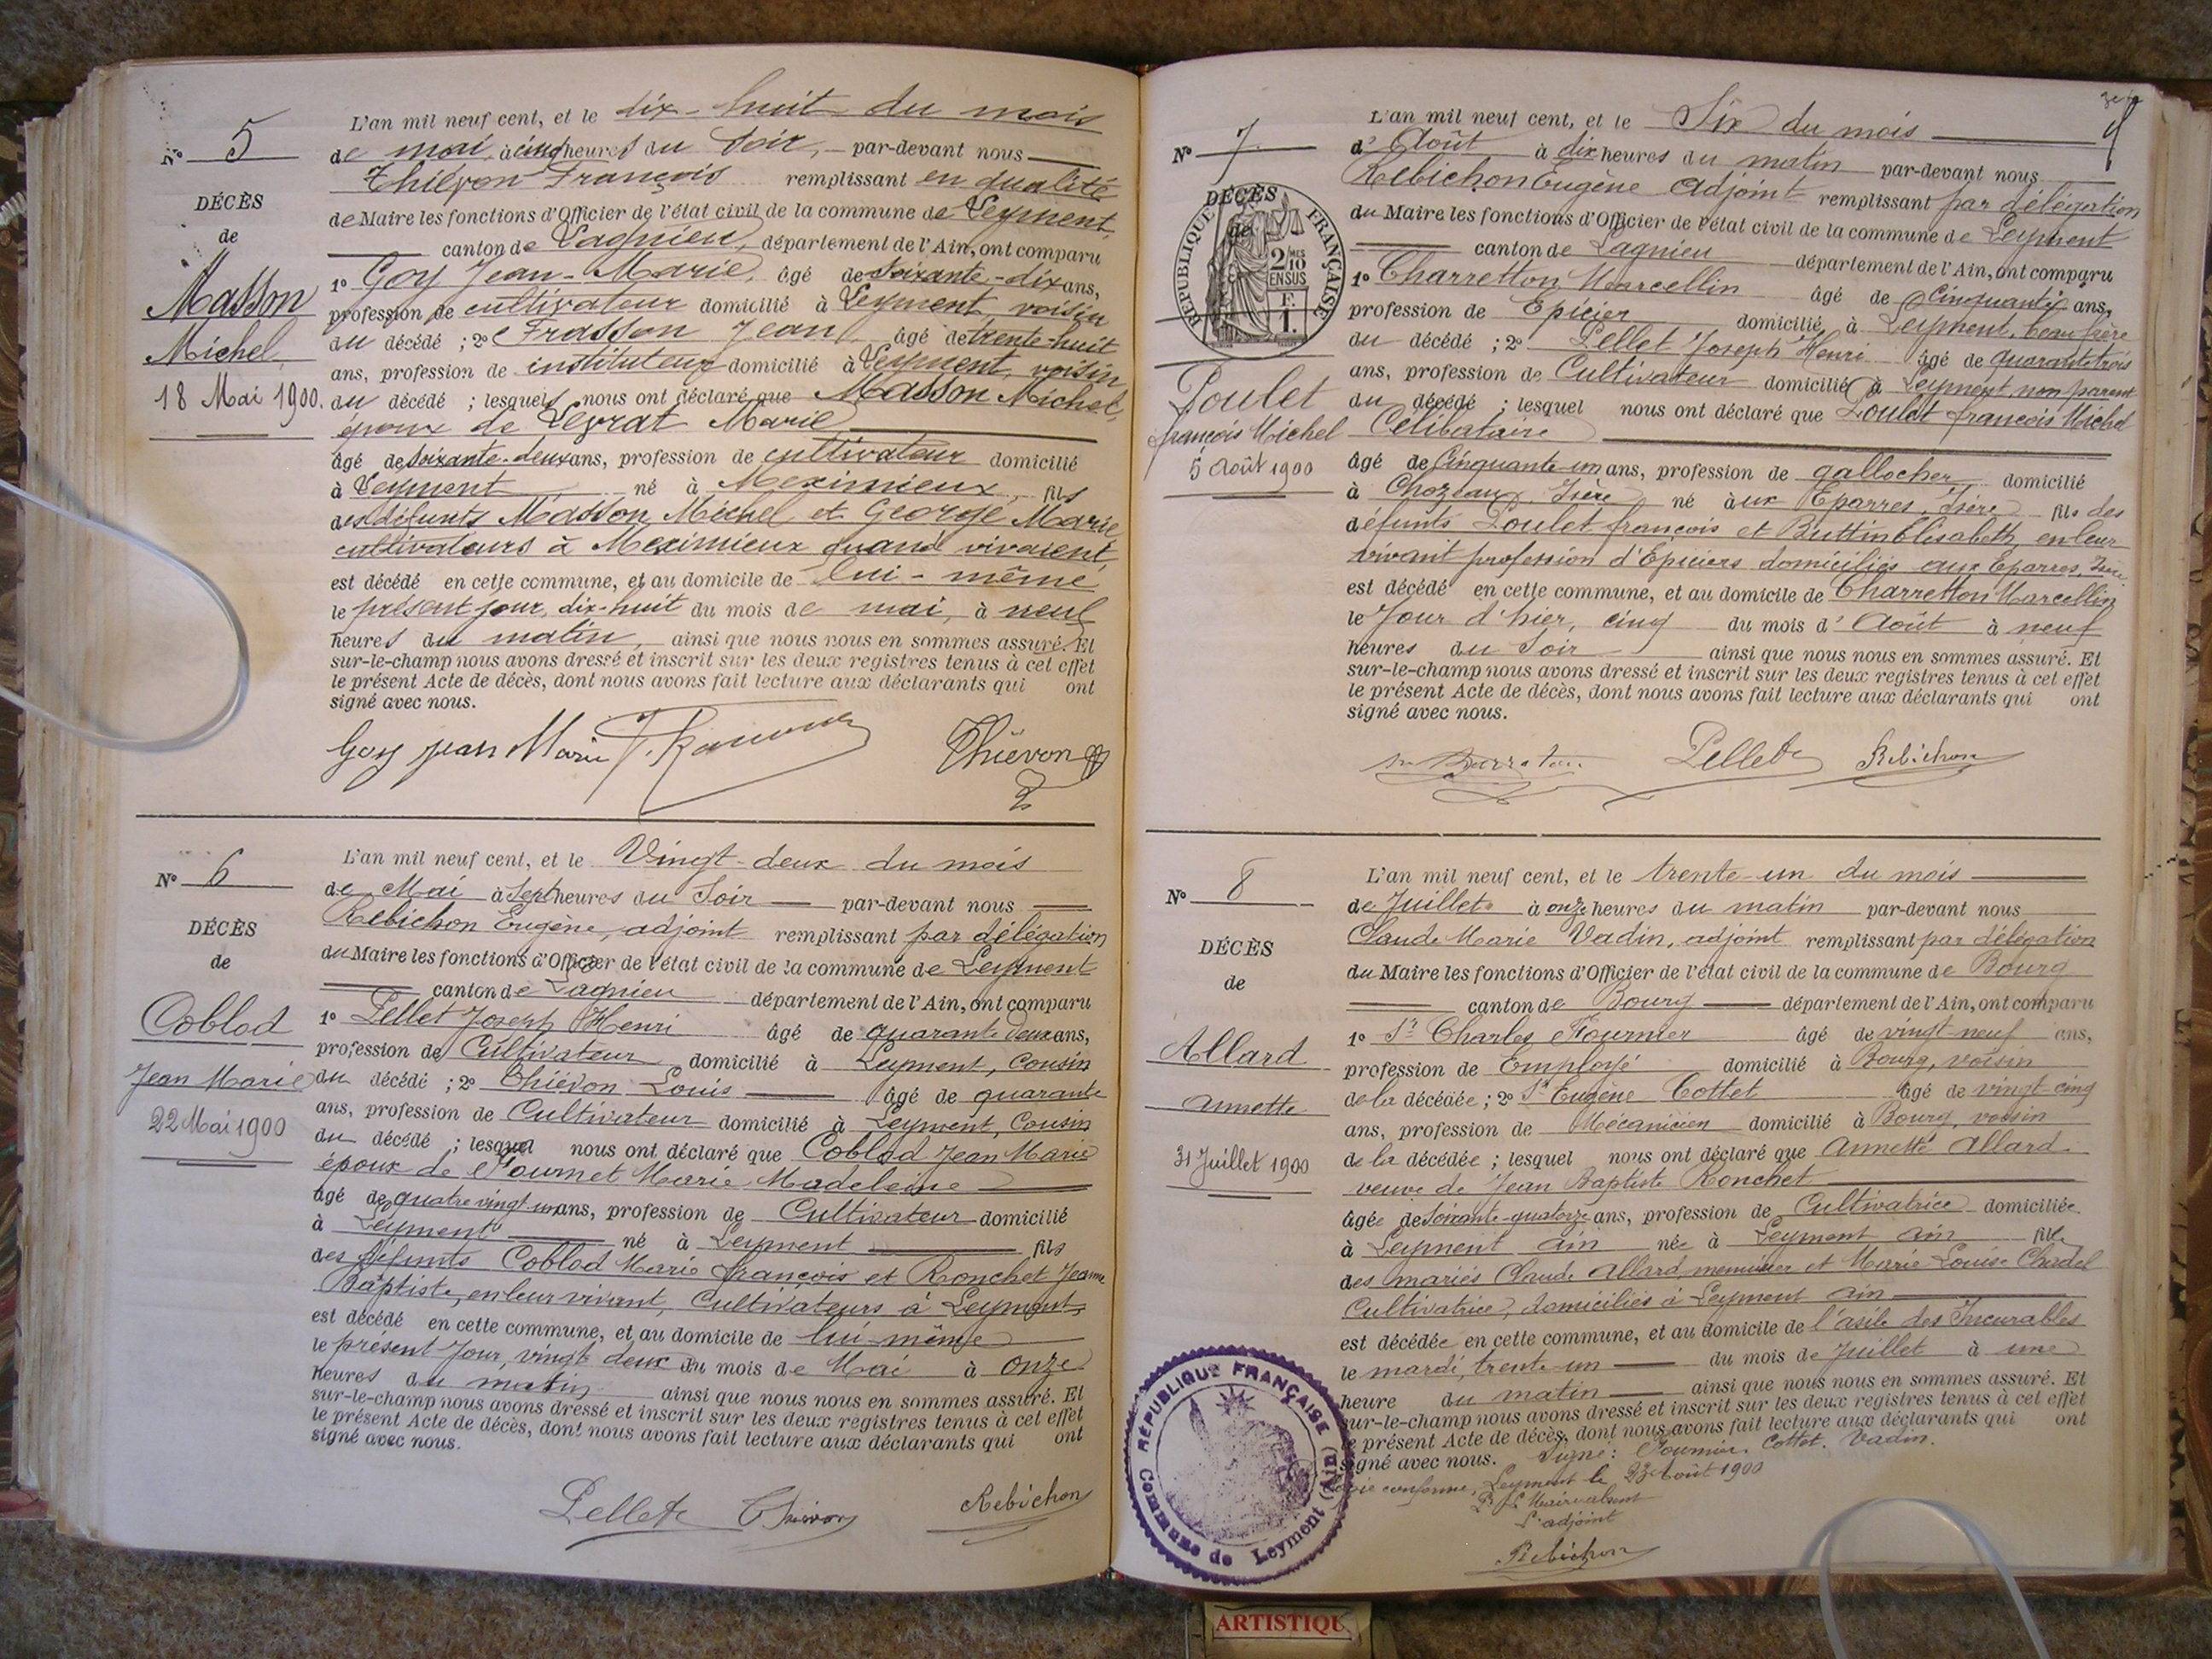 N° 5
DÉCÈS
de
Masson
Michel
18 Mai 1900.
L'an mil neuf cent, et le dix-huit du mois
de mai, à cinq heures du Soir, par-devant nous
Thiévon François remplissant en qualité
de Maire les fonctions d'Officier de l'état civil de la commune de Leyment,
canton de Lagnieu, département de l'Ain, ont comparu
1° Goy Jean-Marie, âgé de soixante-dix ans,
profession de cultivateur domicilié à Leyment, voisin
du décédé ; 2° Frasson Jean, âgé de trente-huit
ans, profession de instituteur domicilié à Leyment, voisin
du décédé ; lesquels nous ont déclaré que Masson Michel,
époux de Leyrat Marie
âgé de soixante-deux ans, profession de cultivateur domicilié
à Leyment né à Meximieux, fils
des défunts Masson Michel et George Marie
cultivateurs à Meximieux quand vivaient,
est décédé en cette commune, et au domicile de lui-même
le présent jour, dix-huit du mois de mai, à neuf
heures du matin, ainsi que nous nous en sommes assuré. Et
sur-le-champ nous avons dressé et inscrit sur les deux registres tenus à cet effet
le présent Acte de décès, dont nous avons fait lecture aux déclarants qui ont
signé avec nous.
Goy Jean Marie Thiévon
N° 6
DÉCÈS
de
Coblod
Jean Marie
22 Mai 1900
L'an mil neuf cent, et le Vingt-deux du mois
de Mai à Sept heures du Soir par-devant nous
Rebichon Eugène, adjoint remplissant par délégation
du Maire les fonctions d'Officier de l'état civil de la commune de Leyment
canton de Lagnieu département de l'Ain, ont comparu
1° Pellet Joseph Henri âgé de quarante deux ans,
profession de Cultivateur domicilié à Leyment, Cousin
du décédé ; 2° Thiévon Louis âgé de quarante
ans, profession de Cultivateur domicilié à Leyment, Cousin
du décédé ; lesquel nous ont déclaré que Coblod Jean Marie
époux de Fournet Marie Madeleine
âgé de quatre vingt un ans, profession de Cultivateur domicilié
à Leyment né à Leyment fils
des défunts Coblod Marie françois et Ronchet Jeanne
Baptiste, en leur vivant, Cultivateurs à Leyment,
est décédé en cette commune, et au domicile de lui même
le présent Jour, vingt deux du mois de Mai à onze
heures du matin ainsi que nous nous en sommes assuré. Et
sur-le-champ nous avons dressé et inscrit sur les deux registres tenus à cet effet
le présent Acte de décès, dont nous avons fait lecture aux déclarants qui ont
signé avec nous.
Pellet Thiévon Rebichon
N° 7.
DÉCÈS
de
RÉPUBLIQUE FRANÇAISE
2/10MES
EN SUS
F.
1.
Poulet
françois Michel
5 Août 1900
4
L'an mil neuf cent, et le Six du mois
d'Août à dix heures du matin par-devant nous
Rebichon Eugène Adjoint remplissant par délégation
du Maire les fonctions d'Officier de l'état civil de la commune de Leyment
canton de Lagnieu département de l'Ain, ont comparu
1° Charretton Marcellin âgé de Cinquante ans,
profession de Epicier domicilié à Leyment, beau frère
du décédé ; 2° Pellet Joseph Henri âgé de quarante trois
ans, profession de Cultivateur domicilié à Leyment, non parent
du décédé ; lesquel nous ont déclaré que Poulet françois Michel
Célibataire
âgé de Cinquante-un ans, profession de gallocher domicilié
à Chozeaux Isère né à ux Eparres, Isère fils des
défunts Poulet françois et Buttin Elisabeth, en leur
vivant profession d'Epiciers domiciliés aux Eparres, Isère
est décédé en cette commune, et au domicile de Charretton Marcellin
le Jour d'hier, cinq du mois d'Août à neuf
heures du Soir ainsi que nous nous en sommes assuré. Et
sur-le-champ nous avons dressé et inscrit sur les deux registres tenus à cet effet
le présent Acte de décès, dont nous avons fait lecture aux déclarants qui ont
signé avec nous.
Pellet Rebichon
N° 8
DÉCÈS
de
Allard
Annette
31 Juillet 1900
L'an mil neuf cent, et le trente-un du mois
de Juillet à onze heures du matin par-devant nous
Claude Marie Vadin, adjoint remplissant par délégation
du Maire les fonctions d'Officier de l'état civil de la commune de Bourg
canton de Bourg département de l'Ain, ont comparu
1° Sr Charles Fournier âgé de vingt-neuf ans,
profession de Employé domicilié à Bourg, voisin
de la décédée ; 2° Sr Eugène Cottet âgé de vingt-cinq
ans, profession de Mécanicien domicilié à Bourg, voisin
de la décédée ; lesquel nous ont déclaré que Annette Allard
veuve de Jean Baptiste Ronchet
âgée de Soixante-quatorze ans, profession de Cultivatrice domiciliée
à Leyment Ain née à Leyment Ain fille
des mariés Claude Allard, menuisier et Marie Louise Chadel
Cultivatrice, domiciliés à Leyment Ain
est décédée en cette commune, et au domicile de l'asile des Incurables
le mardi, trente-un du mois de Juillet à une
heure du matin ainsi que nous nous en sommes assuré. Et
sur-le-champ nous avons dressé et inscrit sur les deux registres tenus à cet effet
le présent Acte de décès, dont nous avons fait lecture aux déclarants qui ont
signé avec nous. Signé : Fournier. Cottet. Vadin.
conforme, Leyment le 23 Août 1900
P. le Maire absent
L'adjoint
Rebichon
RÉPUBLIQUE FRANÇAISE
Commune de Leyment (Ain)
ARTISTIQU